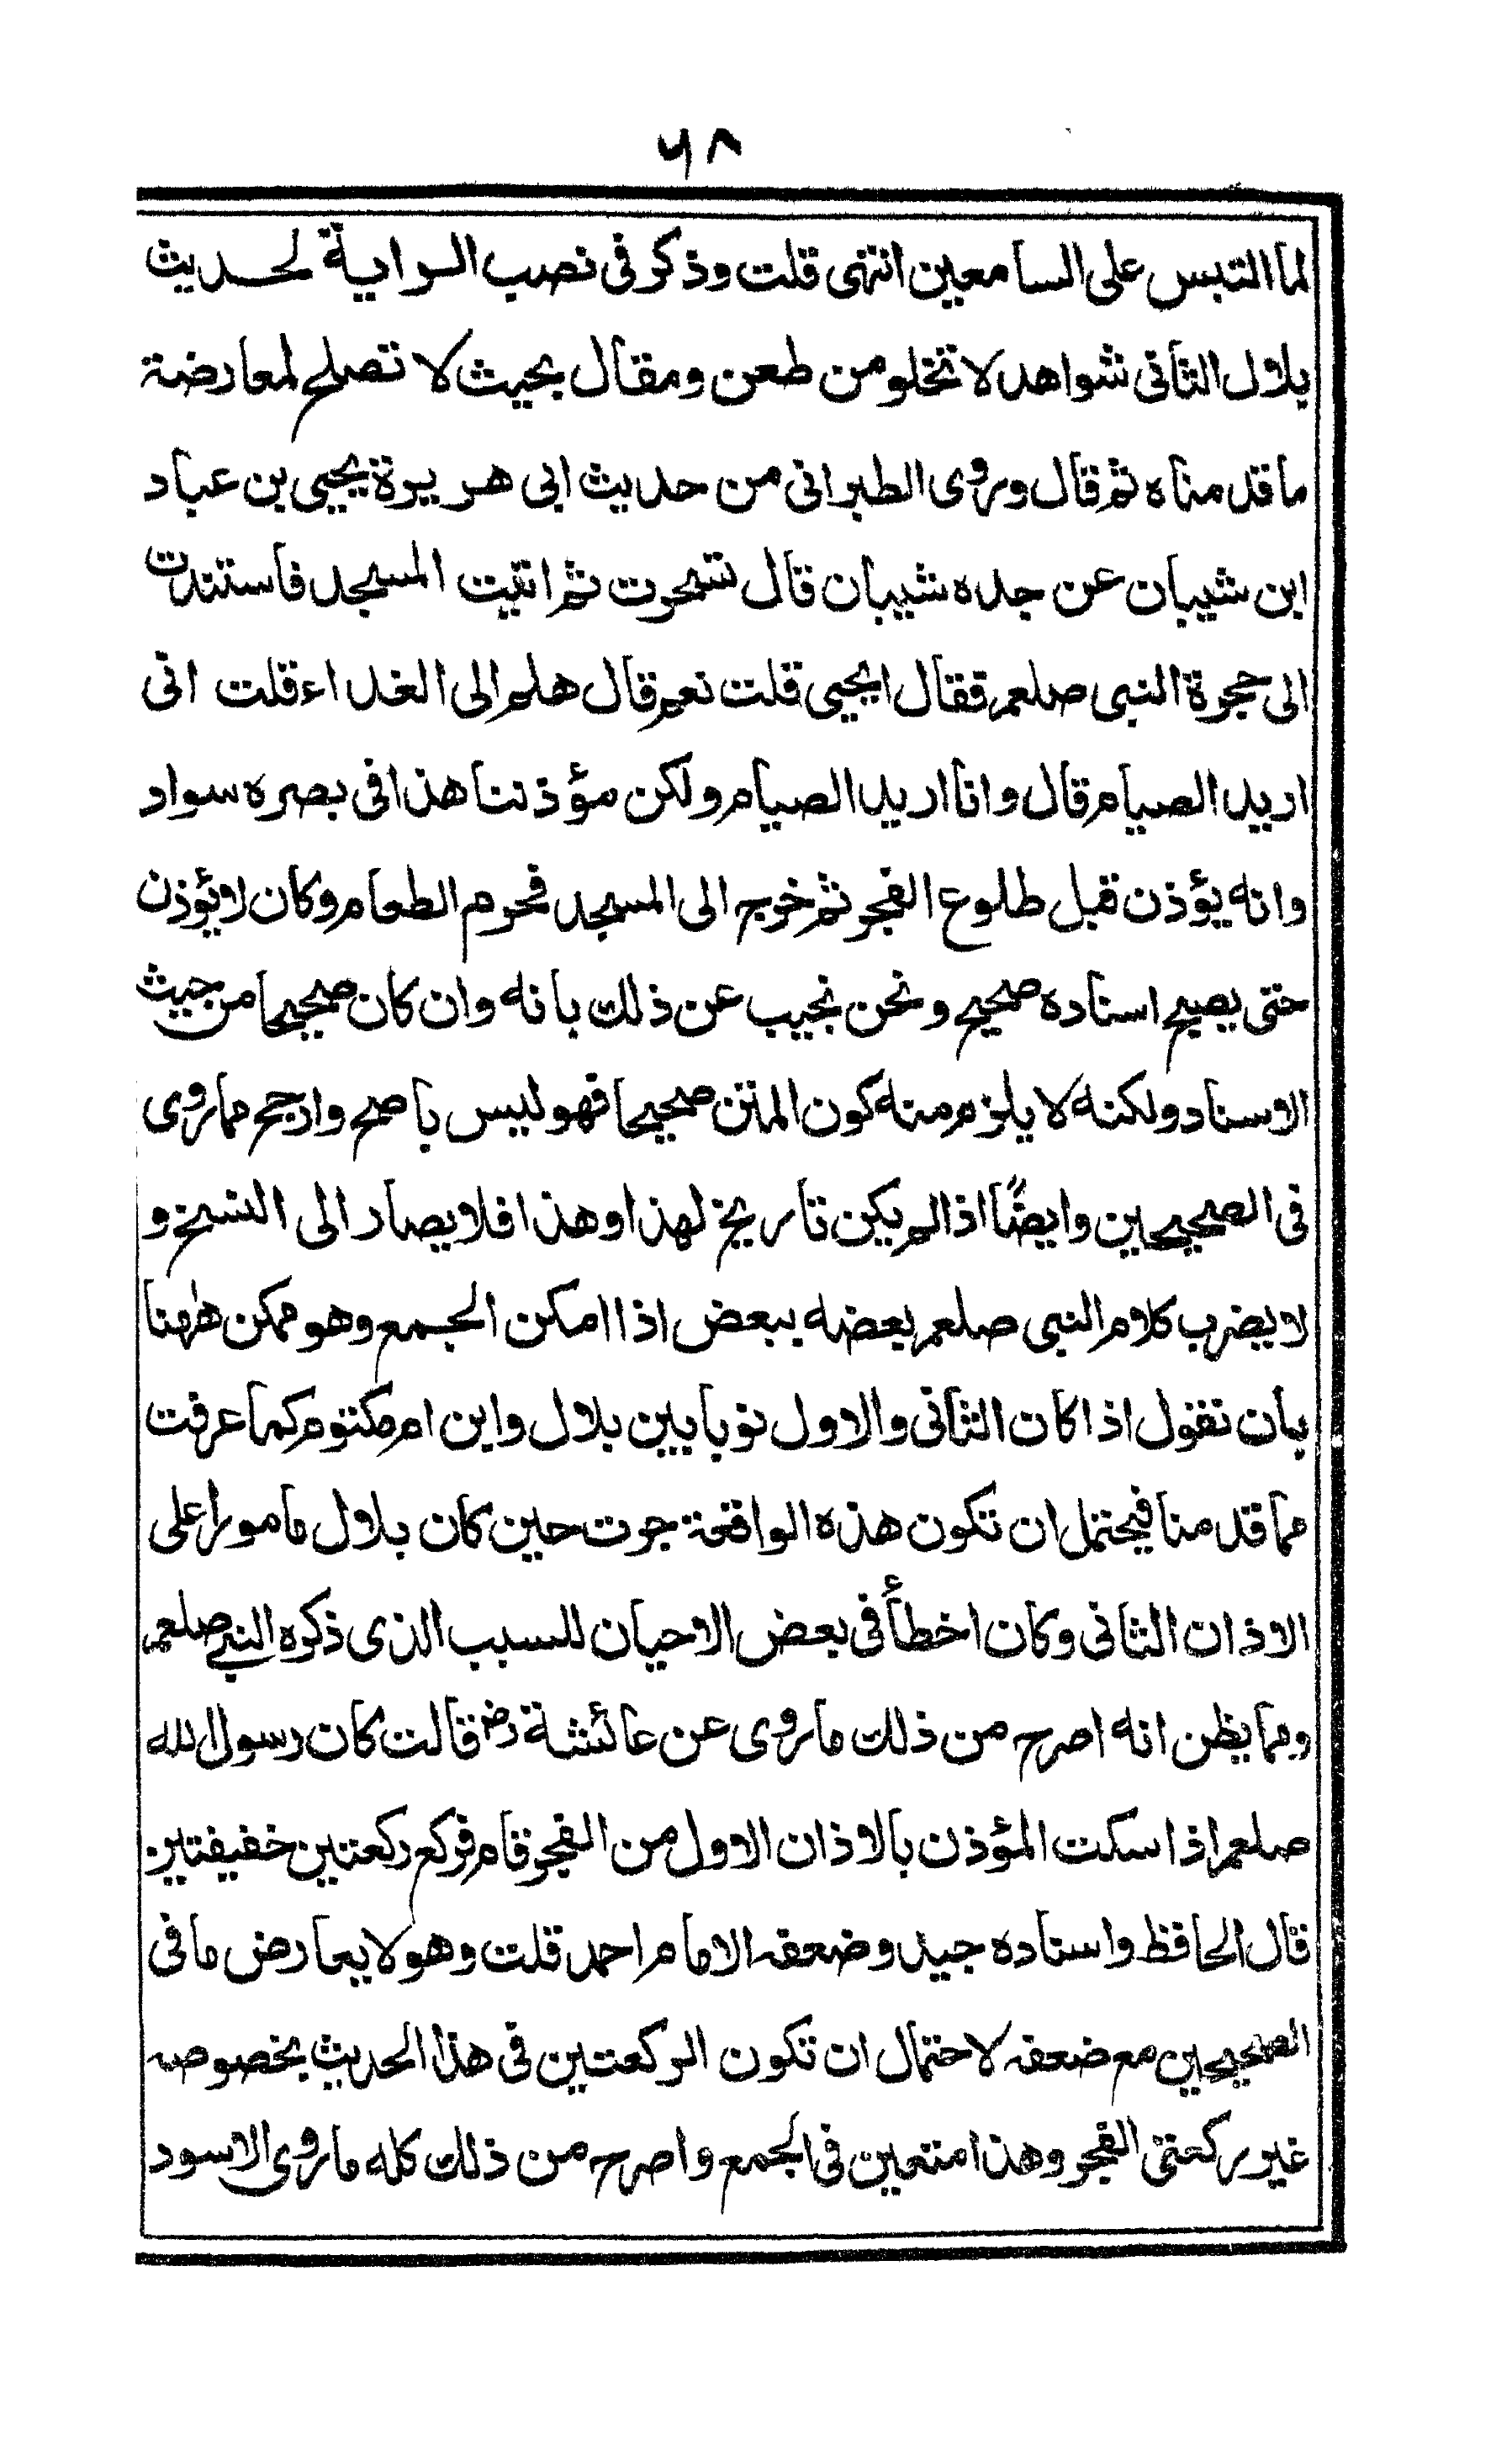 ٦٨
لما التبس على السامعين انتهى قلت وذكر فى نصب الراية لحديث
بلال الثانى شواهد لا تخلو من طعن ومقال بحيث لا تصلح لمعارضة
ما قدمناه ثم قال وروى الطبرانى من حديث ابى هريرة يحيى بن عباد
ابن شيبان عن جده شيبان قال تسحرت ثم اتيت المسجد فاستندت
الى حجرة النبى صلعم فقال ايحيى قلت نعم قال هلم الى الغداء قلت انى
اريد الصيام قال وانا اريد الصيام ولكن مؤذننا هذا فى بصره سواد
وانه يؤذن قبل طلوع الفجر ثم خرج الى المسجد فحرم الطعام وكان لا يؤذن
حتى يصبح اسناده صحيح ونحن نجيب عن ذلك بانه وان كان صحيحا من حيث
الاسناد ولكنه لا يلزم منه كون المتن صحيحا فهو ليس باصح وارجح مما روى
فى الصحيحين وايضًا اذا لم يكن تاريخ لهذا وهذا فلا يصار الى النسخ و
لا يضرب كلام النبى صلعم بعضه ببعض اذا امكن الجمع وهو ممكن هٰهنا
بان نقول اذا كان الثانى والاول نوبا بين بلال وابن ام مكتوم كما عرفت
مما قدمنا فيحتمل ان تكون هذه الواقعة جرت حين كان بلال مامورا على
الاذان الثانى وكان اخطأ فى بعض الاحيان للسبب الذى ذكره النبى صلعم
ومما يظن انه اصرح من ذلك ما روى عن عائشة رض قالت كان رسول الله
صلعم اذا سكت المؤذن بالاذان الاول من الفجر قام فركع ركعتين خفيفتين
قال الحافظ واسناده جيد وضعفه الامام احمد قلت وهو لا يعارض ما فى
الصحيحين مع ضعفه لاحتمال ان تكون الركعتين فى هذا الحديث بخصوصه
غير ركعتى الفجر وهذا متعين فى الجمع واصرح من ذلك كله ما روى الاسود